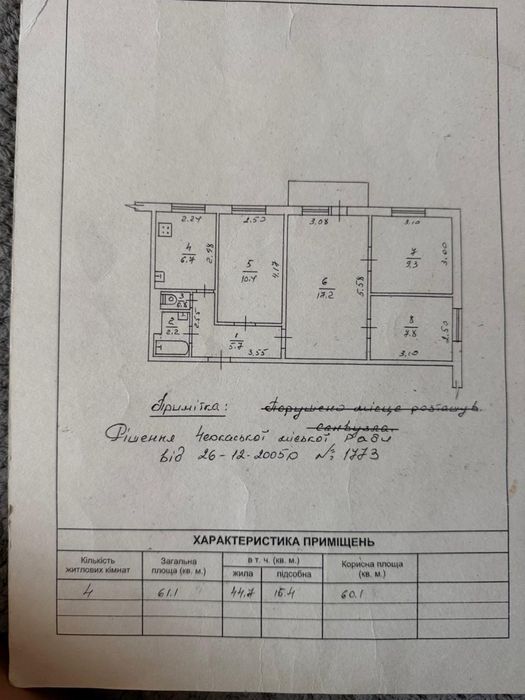 2.24
2.50
3.08
3.10
4
6.7
2.98
5
10.4
4.17
6
17.2
5.58
7
9.3
3.00
3
0.8
2
2.2
2.55
1
5.7
3.55
8
7.8
2.50
3.10
Примітка: Порушено місце розташув.
санвузла.
Рішення Черкаської міської Ради
від 26-12-2005р № 1773
ХАРАКТЕРИСТИКА ПРИМІЩЕНЬ
Кількість житлових кімнат
Загальна площа (кв. м.)
в т. ч. (кв. м.)
жила
підсобна
Корисна площа (кв. м.)
4 61.1 44.7 15.4 60.1